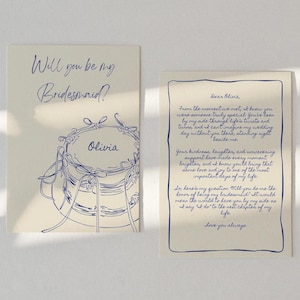 Will you be my
Bridesmaid?
Olivia
dear Olivia,
From the moment we met, I knew you
were someone truly special. You've been
by my side through life's twists and
turns, and I can't imagine my wedding
day without you there, standing right
beside me.
Your kindness, laughter, and unwavering
support have made every moment
brighter, and I know you'll bring that
same love and joy to one of the most
important days of my life.
So here's my question: Will you do me the
honor of being my bridesmaid? It would
mean the world to have you by my side as
I say "I do" to the next chapter of my
life.
Love you always